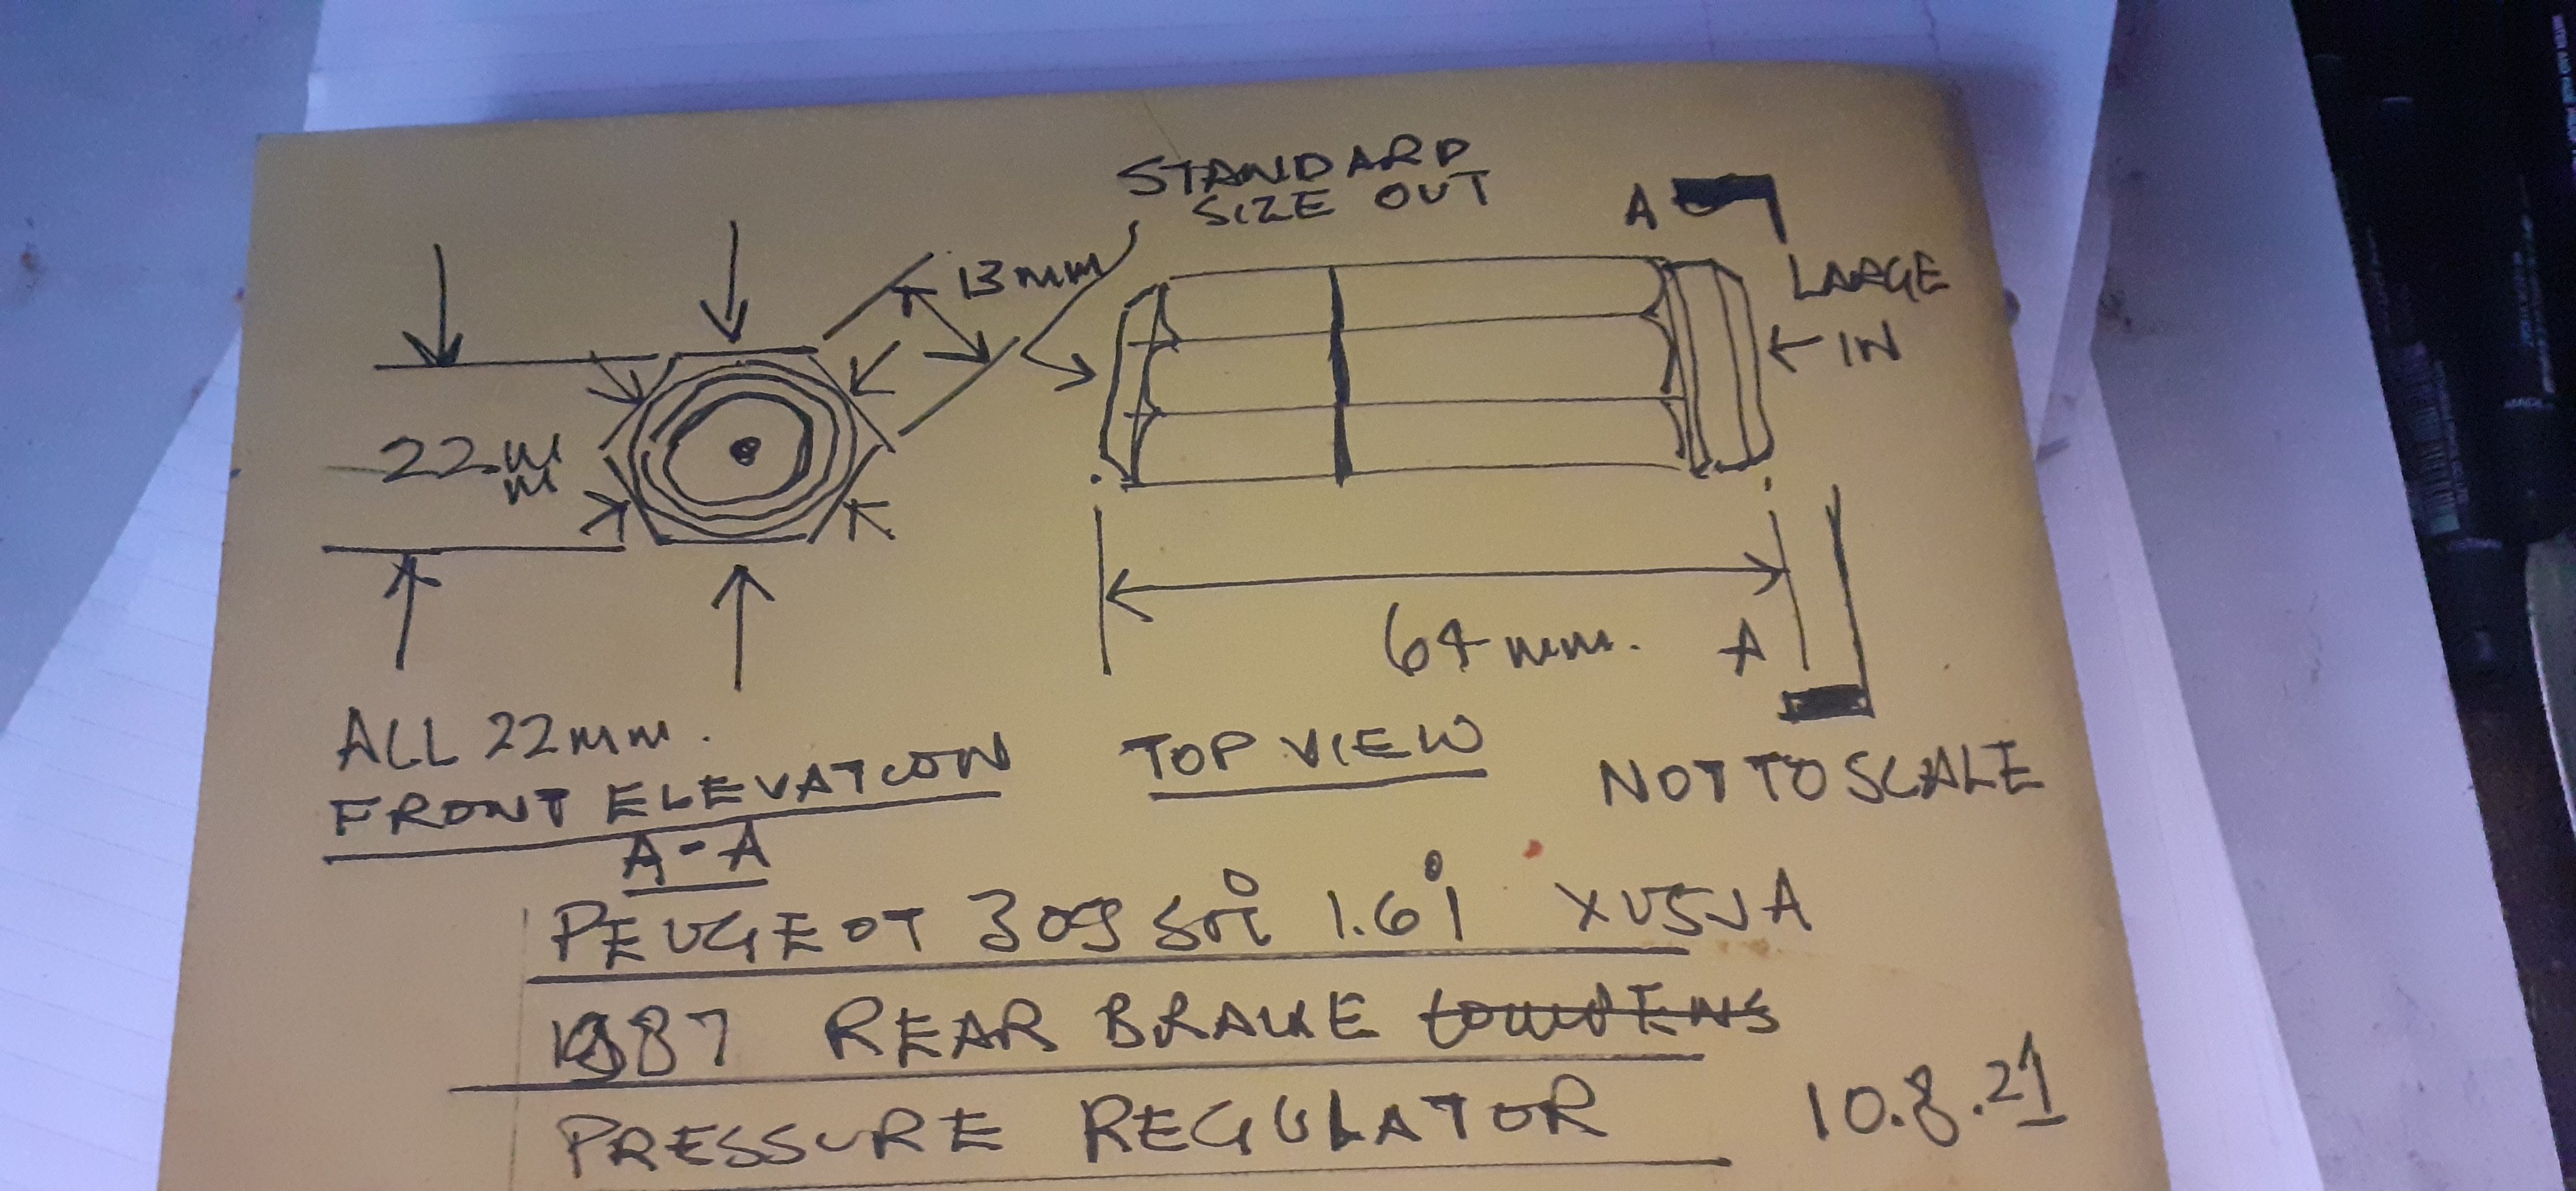 STANDARD
SIZE OUT
A
13mm
LARGE
← IN
22mm
64mm.
A
ALL 22mm.
FRONT ELEVATION
A-A
TOP VIEW
NOT TO SCALE
PEUGEOT 309 SRi 1.6i XU5JA
1987 REAR BRAKE
PRESSURE REGULATOR
10.8.21